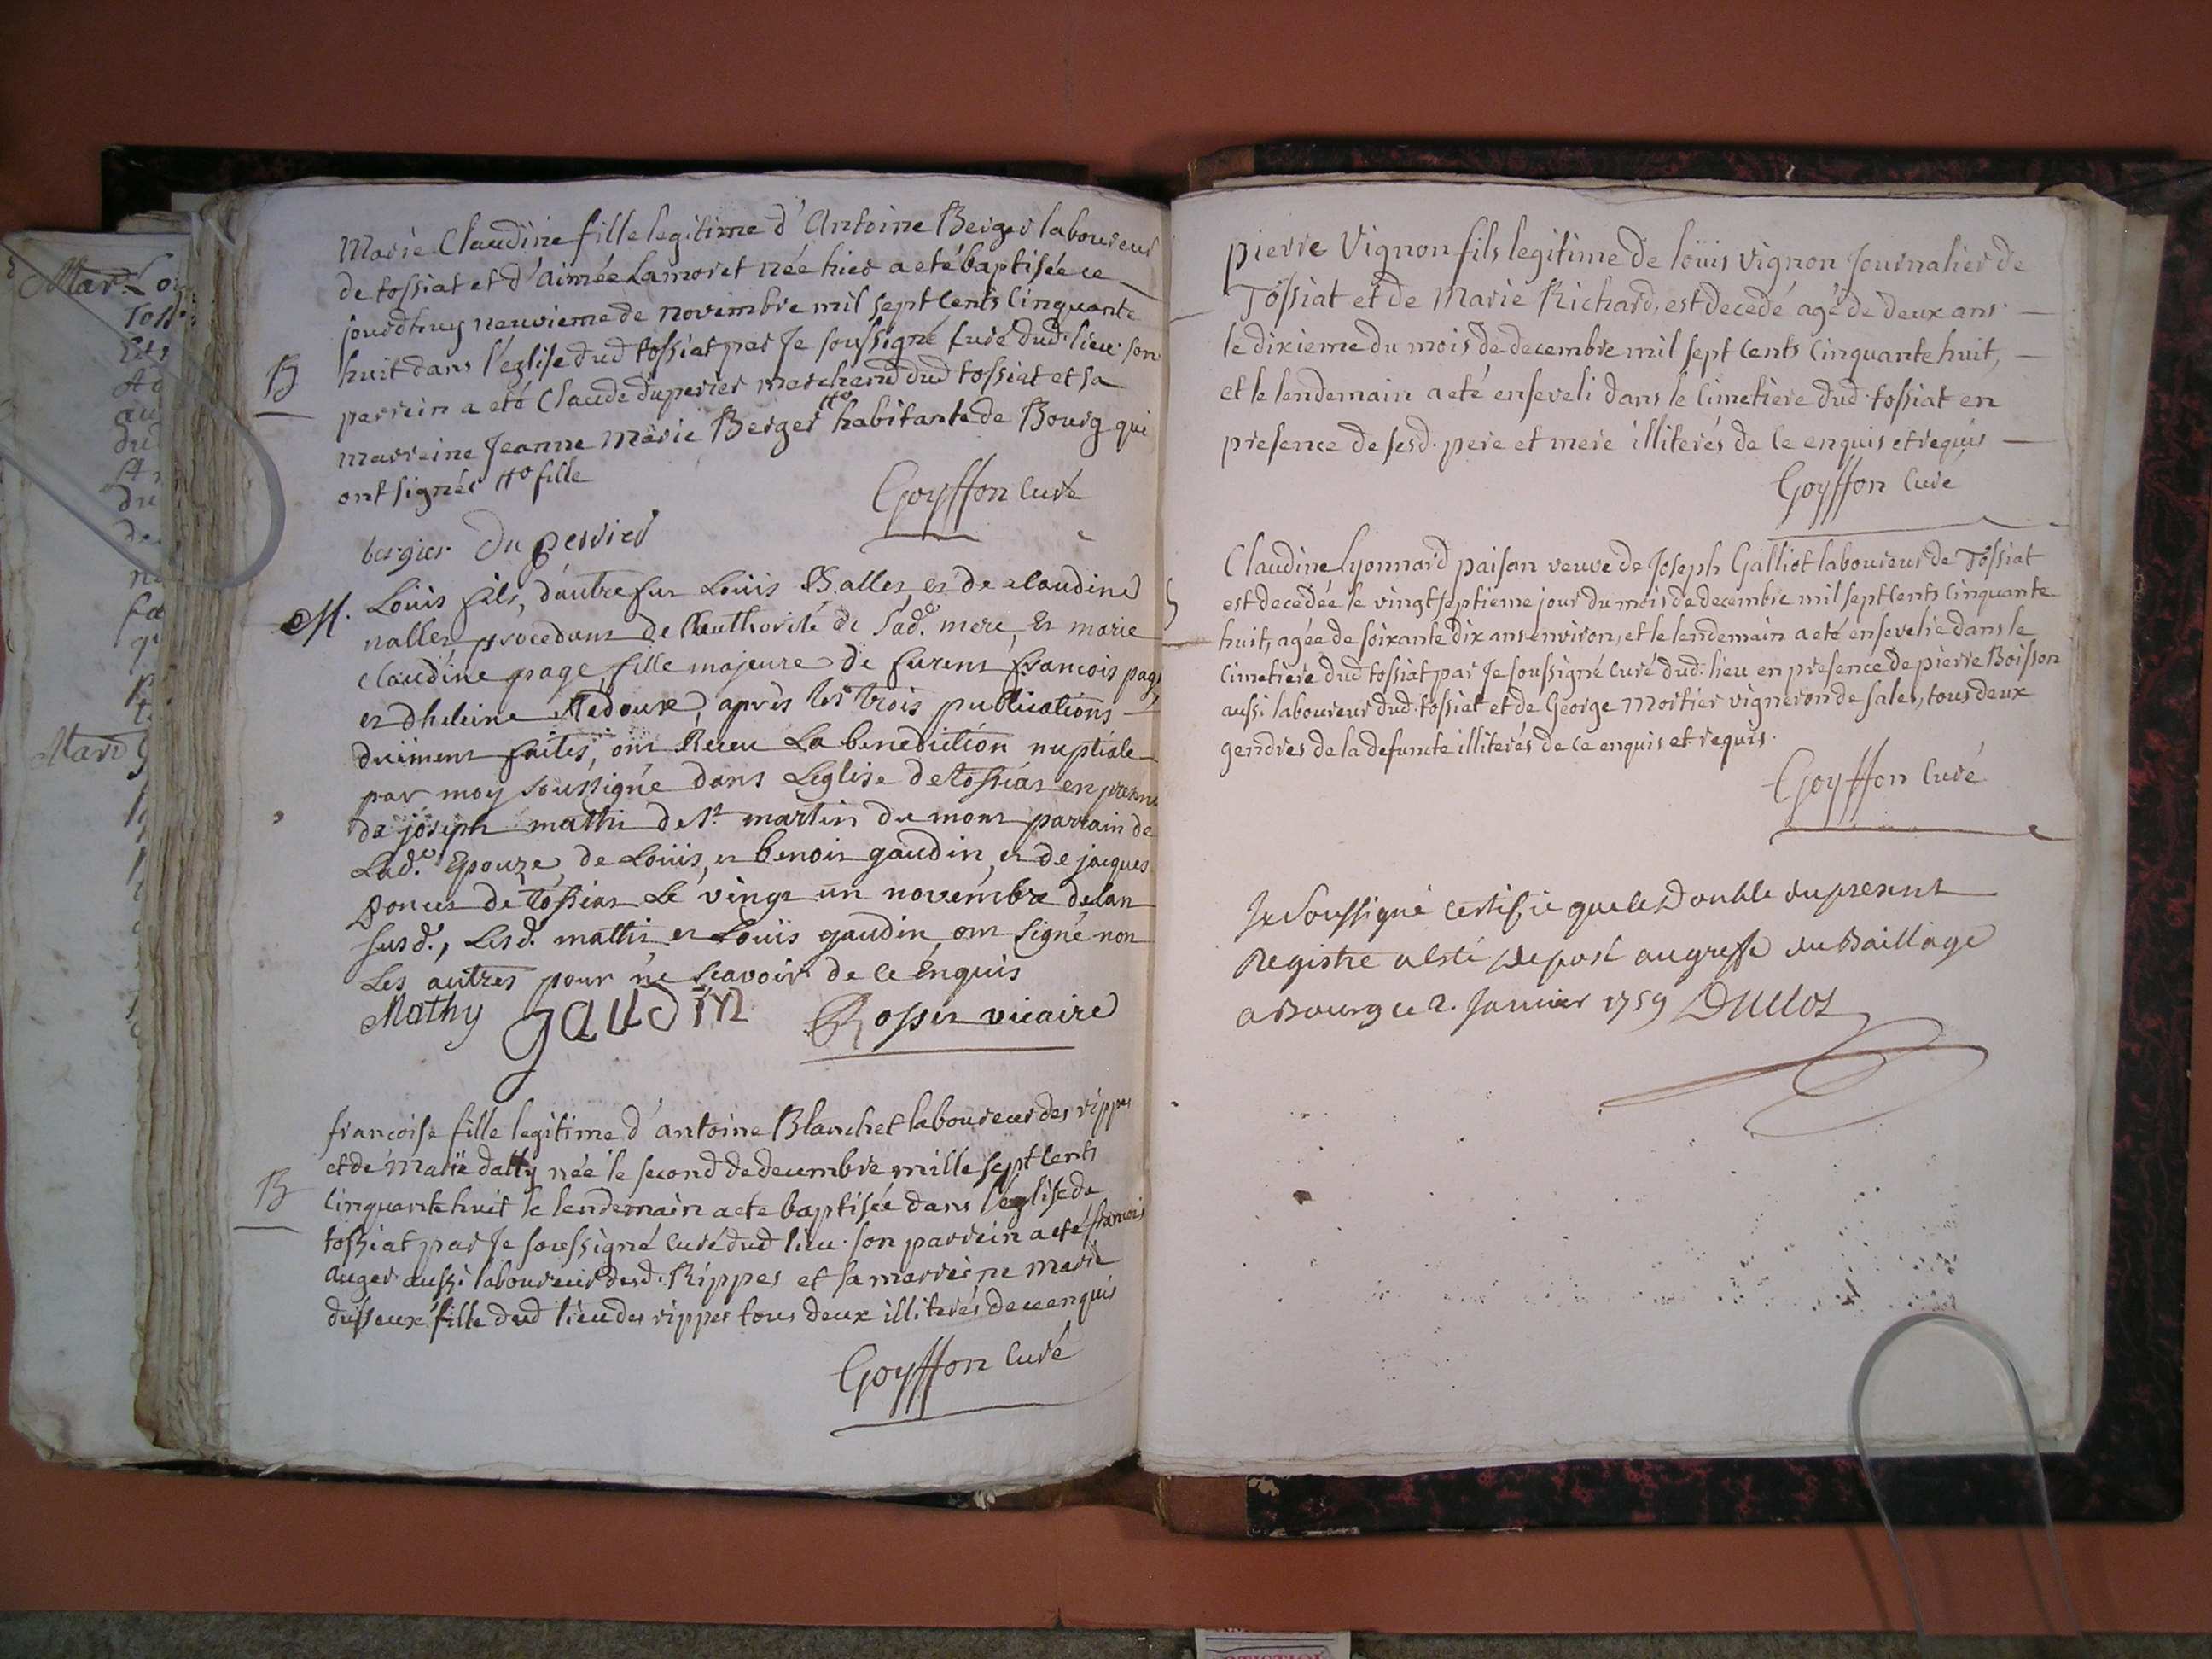 Marie Claudine fille legitime d'Antoine Berger laboureur
de tossiat et d'aimée Lamoret née hier a eté baptisée ce
jourdhuy neuvieme de novembre mil sept cents cinquante
huit dans l'eglise dud tossiat par Je soussigné curé dud. lieu. son
B
parrein a eté Claude duperier marchand dud tossiat et sa
marreine Jeanne Marie Berger habitante de Bourg qui
ont signés fille
Goyffon curé
bergier du perrier
M. Louis fils d'autre fut Louis et de claudine
nallet procedant de l'authorité de sad.e mere, et marie
claudine page, fille majeure de furent francois page
et dheleine Medoux, après les trois publications
duëment faites, ont Receu La benediction nuptiale
par moy soussigné dans Leglise de tossiat en presence
de joseph mathi de st martin du mont parrain de
Lad.e Epouze, de Louis, et benoit gaudin, et de jacques
de tossiat Le vingt un novembre de lan
susd., Lesd. mathi et Louis gaudin ont signé non
Les autres pour ne scavoir de ce Enquis
Mathy gaudin Rosset vicaire
francoise fille legitime d'antoine Blanchet laboureur des rippes
et de Marie dally née le second de decembre mille sept cents
B
cinquante huit le lendemain a eté baptisée dans l'eglise de
tossiat par Je soussigné curé dud lieu. son parrein a eté francois
auger aussi laboureur desd. Rippes et sa marreine marie
dufseux fille dud lieu des rippes tous deux illiterés de ce enquis
Goyffon curé
pierre Vignon fils legitime de loüis vignon Journalier de
Tossiat et de Marie Richard, est decedé agé de deux ans
le dixieme du mois de decembre mil sept cents cinquante huit,
et le lendemain a eté enseveli dans le cimetiere dud. tossiat en
presence de sesd. pere et mere illiterés de ce enquis et requis
Goyffon curé
Claudine Lyonnard paisan veuve de Joseph Galliot laboureur de Tossiat
est decedée le vingt septieme jour du mois de decembre mil sept cents cinquante
huit, agée de soixante dix ans environ, et le lendemain a eté ensevelie dans le
cimetiere dud tossiat par Je soussigné curé dud. lieu en presence de pierre Boisson
aussi laboureur dud. tossiat et de George Mortier vigneron de sales, tous deux
gendres de la defuncte illiterés de ce enquis et requis.
Goyffon curé
Je soussigné certifie que le Double du present
Registre a esté deposé au greffe du Baillage
a Bourg ce 2. Janvier 1759 Duclos